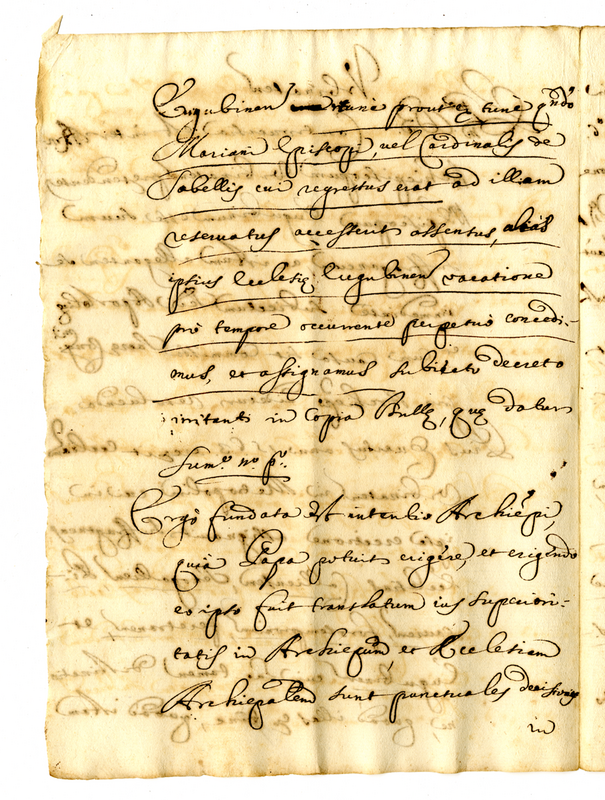 Eugubinen tunc prout ex tunc qndo
Mariani Episcopi, vel Cardinalis de
Tabellis cui regressus erat ad illam
reservatus accesserit assensus, aliàs
ipsius Ecclesię Eugubinen vacatione
pro tempore occurrente perpetuò concedi-
mus, et assignamus subiecto decreto
irritanti in Copia Bullę, quę datur
Sum.º nº pº.
Ergò fundata est intentio Archiepi,
quia Papa potuit erigere, et erigendo
eo ipso fuit translatum ius superiori-
tatis in Archiepum, et Ecclesiam
Archiepalem sunt punctuales decisiones
in